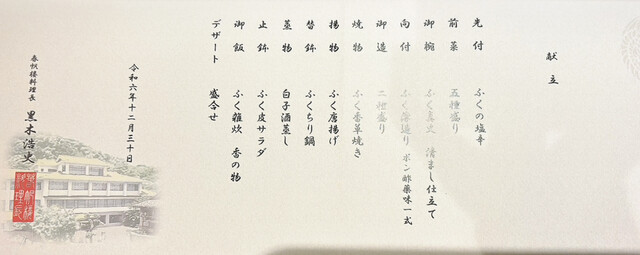 献立
先付 ふくの塩辛
前菜 五種盛り
御椀 ふく真丈 清まし仕立て
向付 ふく薄造り ポン酢薬味一式
御造 二種盛り
焼物 ふく香草焼き
揚物 ふく唐揚げ
替鉢 ふくちり鍋
蒸物 白子酒蒸し
止鉢 ふく皮サラダ
御飯 ふく雑炊 香の物
デザート 盛合せ
令和六年十二月三十日
春帆楼料理長 黒木浩史